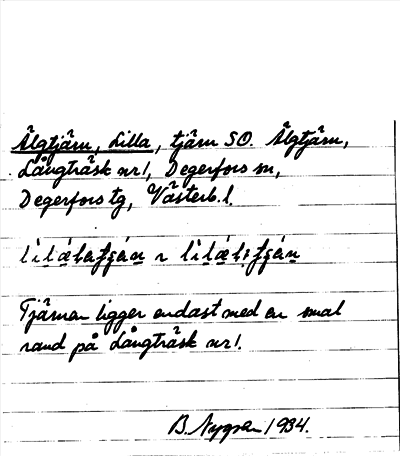 Älgtjärn, Lilla, tjärn SO. Älgtjärn,
Långträsk nr1, Degerfors sn,
Degerfors tg, Västerb. l.
Tjärnen ligger endast med en smal
rand på Långträsk nr1.
B. Nygren 1934.